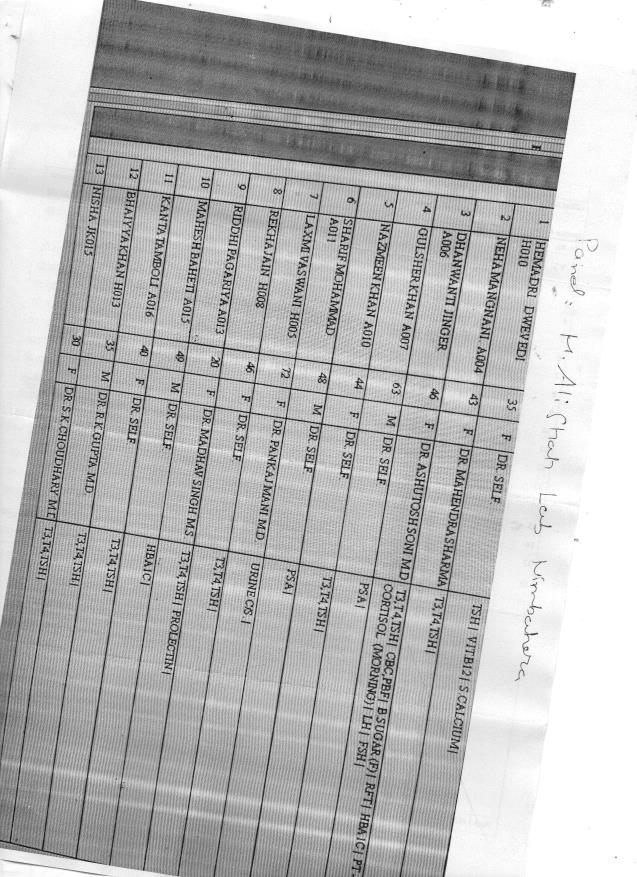 Panel: M. Ali Shah Lab Nimbahera
1 HEMADRI DWEVEDI H010 35 F DR. SELF TSH| VIT.B12| S.CALCIUM|
2 NEHA MANGNANI. A004 43 F DR. MAHENDRA SHARMA T3,T4,TSH|
3 DHANWANTI JINGER A006 46 F DR. ASHUTOSH SONI M.D T3,T4,TSH| CBC,PBF| B SUGAR (F)| RFT| HBA1C| PT-
CORTISOL (MORNING)| LH| FSH|
4 GULSHER KHAN A007 63 M DR. SELF PSA|
5 NAZMEEN KHAN A010 44 F DR. SELF T3,T4,TSH|
6 SHARIF MOHAMMAD A011 48 M DR. SELF PSA|
7 LAXMI VASWANI H005 72 F DR. PANKAJ MANI M.D. URINE C/S.|
8 REKHA JAIN H008 46 F DR. SELF T3,T4,TSH|
9 RIDDHI PAGARIYA A013 20 F DR. MADHAV SINGH M.S. T3,T4,TSH| PROLECTIN|
10 MAHESH BAHETI A015 49 M DR. SELF HBA1C|
11 KANTA TAMBOLI A016 40 F DR. SELF T3,T4,TSH|
12 BHAIYYA KHAN H013 35 M DR. R.K.GUPTA M.D. T3,T4,TSH|
13 NISHA JK015 30 F DR. S.K.CHOUDHARY T3,T4,TSH|